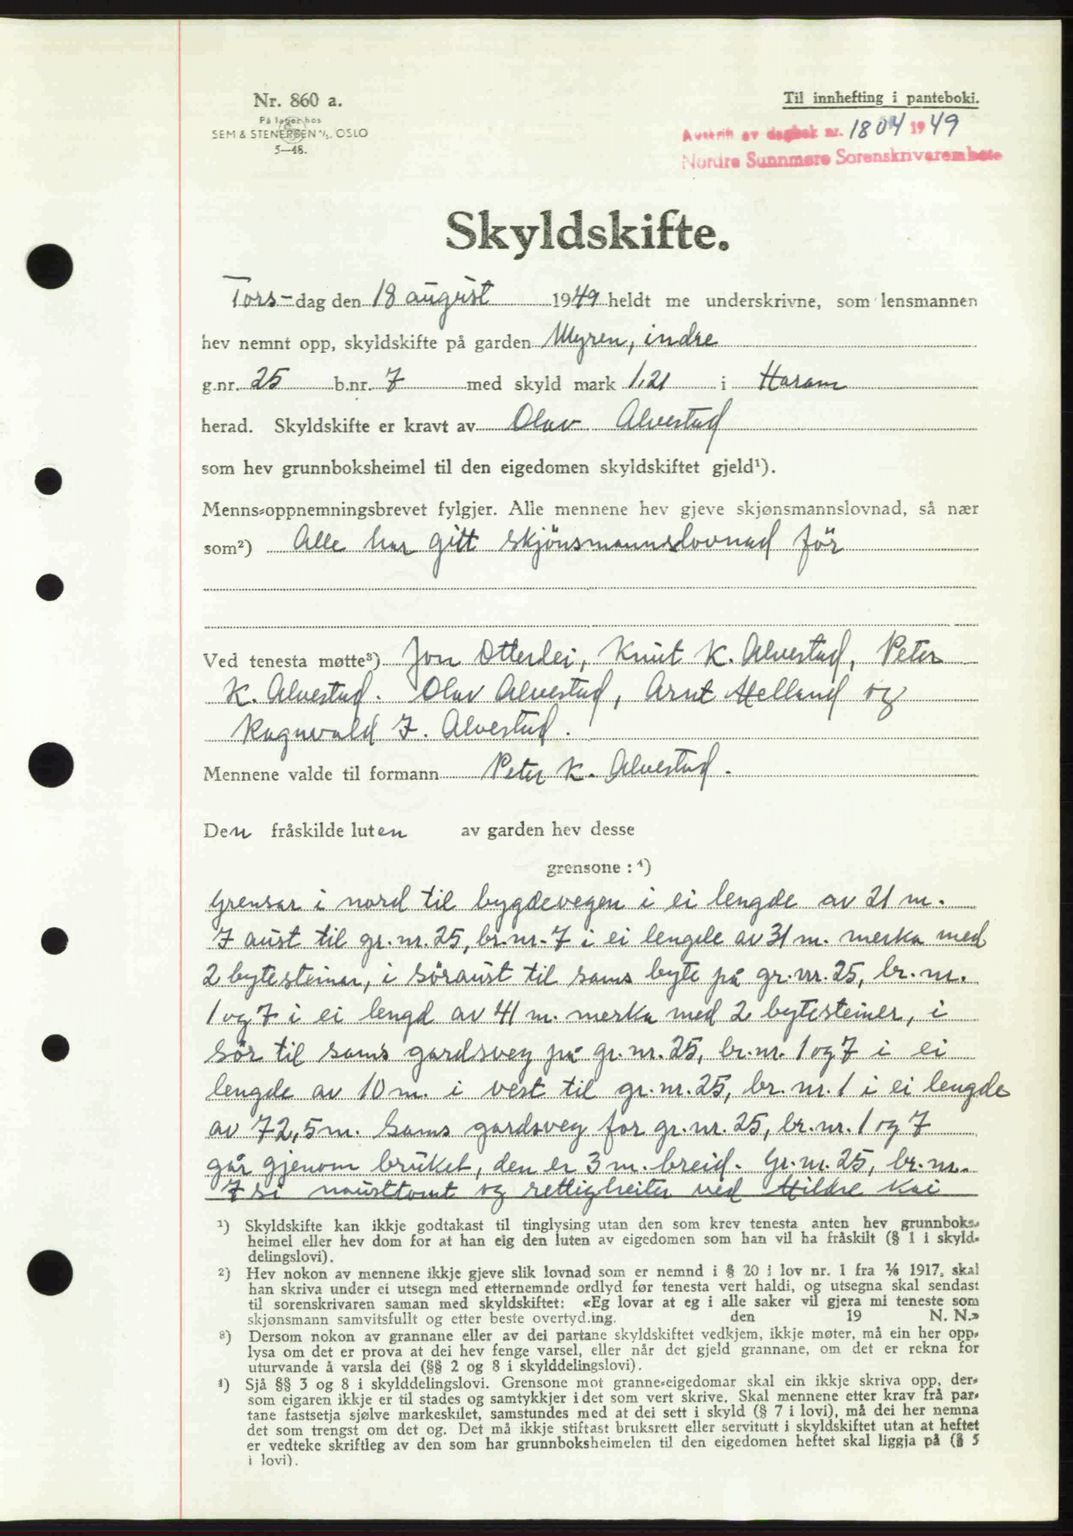 Nr. 860 a.
På lager hos
SEM & STENERSEN A/S, OSLO
5—48.
Til innhefting i panteboki.
Avskrift av dagbok nr. 1804 1949
Nordre Sunnmøre Sorenskrivarembete
Skyldskifte.
Tors-dag den 18 august 1949 heldt me underskrivne, som lensmannen
hev nemnt opp, skyldskifte på garden Myren, indre
g.nr. 25 b.nr. 7 med skyld mark 1,21 i Haram
herad. Skyldskifte er kravt av Olav Alvestad
som hev grunnboksheimel til den eigedomen skyldskiftet gjeld¹).
Menns-oppnemningsbrevet fylgjer. Alle mennene hev gjeve skjønsmannslovnad, så nær
som²) Alle har gitt skjönsmannslovnad för
Ved tenesta møtte³) Jon Otterlei, Knut K. Alvestad, Peter
K. Alvestad. Olav Alvestad, Arnt Helland og
Ragnvald J. Alvestad.
Mennene valde til formann Peter K. Alvestad.
Den fråskilde luten av garden hev desse
grensone : ⁴)
Grensar i nord til bygdevegen i ei lengde av 21 m.
I aust til gr. nr. 25, br. nr. 7 i ei lengde av 31 m. merka med
2 bytesteinar, i söraust til sams byte på gr. nr. 25, br. nr.
1 og 7 i ei lengd av 41 m. merka med 2 bytesteiner, i
sör til sams gardsveg på gr. nr. 25, br. nr. 1 og 7 i ei
lengde av 10 m. i vest til gr. nr. 25, br. nr. 1 i ei lengde
av 72,5 m. Sams gardsveg for gr. nr. 25, br. nr. 1 og 7
går gjenom bruket, den er 3 m. breid. Gr. nr. 25, br. nr.
7 si nausttomt og rettigheiter ved Hildre kai
¹) Skyldskifte kan ikkje godtakast til tinglysing utan den som krev tenesta anten hev grunnboks-
heimel eller hev dom for at han eig den luten av eigedomen som han vil ha fråskilt (§ 1 i skyld-
delingslovi).
²) Hev nokon av mennene ikkje gjeve slik lovnad som er nemnd i § 20 i lov nr. 1 fra ⅙ 1917, skal
han skriva under ei utsegn med etternemnde ordlyd før tenesta vert haldi, og utsegna skal sendast
til sorenskrivaren saman med skyldskiftet: «Eg lovar at eg i alle saker vil gjera mi teneste som
skjønsmann samvitsfullt og etter beste overtyding. den 19 N. N.»
³) Dersom nokon av grannane eller av dei partane skyldskiftet vedkjem, ikkje møter, må ein her opp-
lysa om det er prova at dei hev fenge varsel, eller når det gjeld grannane, om det er rekna for
uturvande å varsla dei (§§ 2 og 8 i skylddelingslovi).
⁴) Sjå §§ 3 og 8 i skylddelingslovi. Grensone mot granne-eigedomar skal ein ikkje skriva opp, der-
som eigaren ikkje er til stades og samtykkjer i det som vert skrive. Skal mennene etter krav frå par-
tane fastsetja sjølve markeskilet, samstundes med at dei sett i skyld (§ 7 i lovi), må dei her nemna
det som trengst om det og. Det må ikkje stiftast bruksrett eller servitutt i skyldskiftet utan at heftet
er vedteke skriftleg av den som har grunnboksheimelen til den eigedomen heftet skal liggja på (§ 5
i lovi).